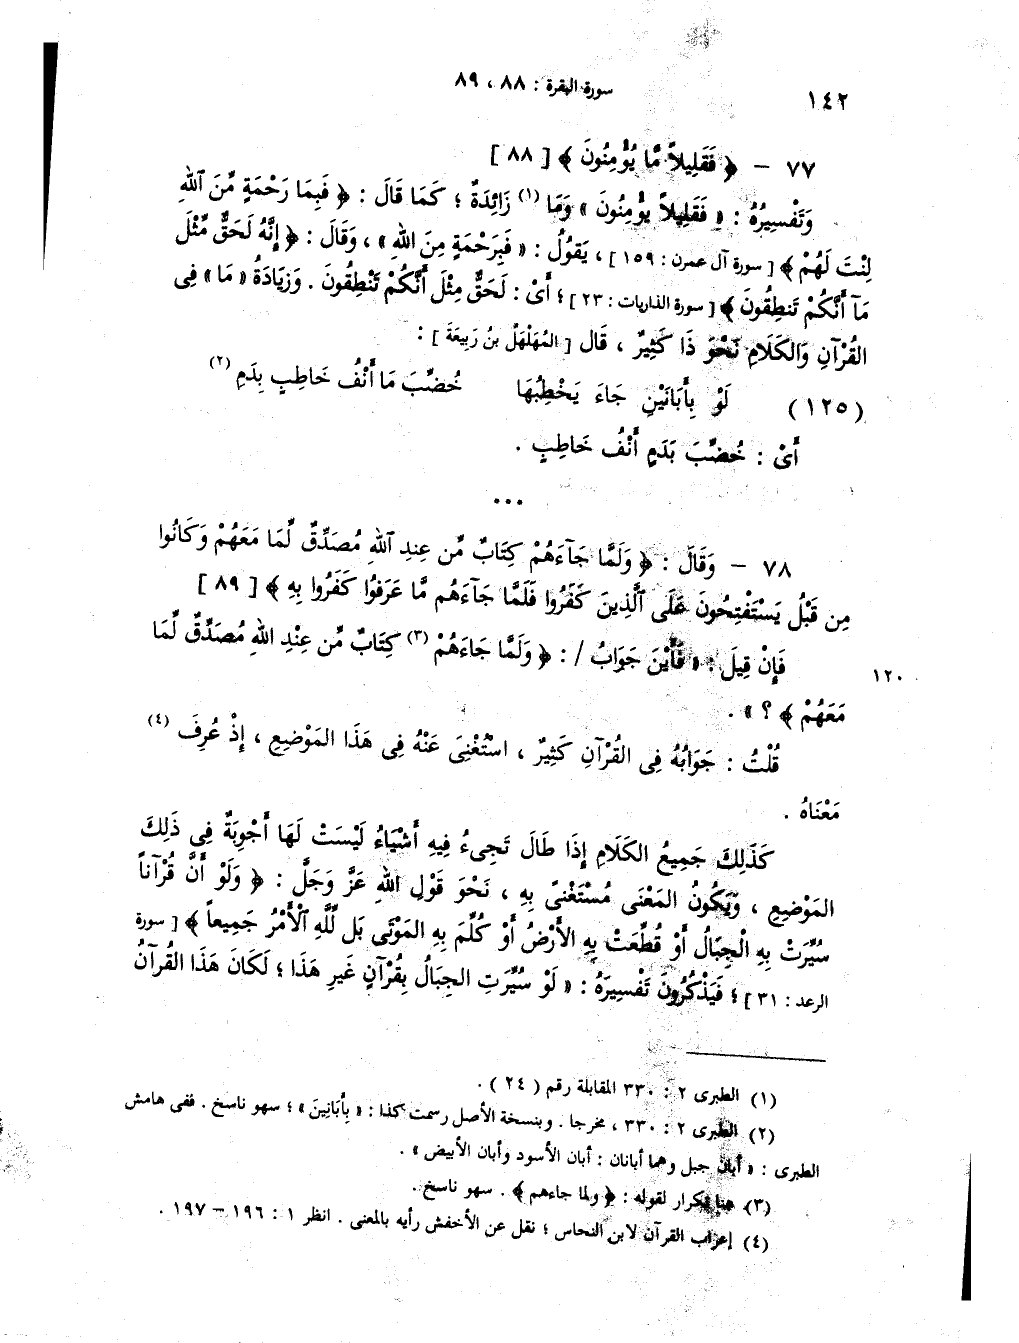 ١٤٢
سورة البقرة : ٨٨ ، ٨٩
٧٧ – ﴿ فَقَلِيلاً مَّا يُؤْمِنُونَ ﴾ [ ٨٨ ]
وَتَفْسِيرُهُ : « فَقَلِيلاً يُؤْمِنُونَ » وَمَا (١) زَائِدَةٌ ؛ كَمَا قَالَ : ﴿ فَبِمَا رَحْمَةٍ مِّنَ ٱللهِ
لِنْتَ لَهُمْ ﴾ [ سورة آل عمرن : ١٥٩ ] ، يَقُولُ : « فَبِرَحْمَةٍ مِنَ اللهِ » ، وَقَالَ : ﴿ إِنَّهُ لَحَقٌّ مِّثْلَ
مَآ أَنَّكُمْ تَنطِقُونَ ﴾ [ سورة الذاريات : ٢٣ ] ؛ أَىْ : لَحَقٌّ مِثْلَ أَنَّكُمْ تَنْطِقُونَ . وَزِيَادَةُ « مَا » فِى
القُرْآنِ وَالكَلَامِ نَحْوَ ذَا كَثِيرٌ ، قَال [ المُهَلْهَلُ بنُ رَبِيعَةَ ] :
(١٢٥) لَوْ بِأَبَانَيْنِ جَاءَ يَخْطِبُهَا خُضِّبَ مَا أَنْفُ خَاطِبٍ بِدَمِ (٢)
أَىْ : خُضِّبَ بَدَمٍ أَنْفُ خَاطِبٍ .
...
٧٨ – وَقَالَ : ﴿ وَلَمَّا جَآءَهُمْ كِتَابٌ مِّن عِندِ ٱللهِ مُصَدِّقٌ لِّمَا مَعَهُمْ وَكَانُوا
مِن قَبْلُ يَسْتَفْتِحُونَ عَلَى ٱلَّذِينَ كَفَرُوا فَلَمَّا جَآءَهُم مَّا عَرَفُوا كَفَرُوا بِهِ ﴾ [ ٨٩ ]
فَإِنْ قِيلَ : « فَأَيْنَ جَوَابُ / : ﴿ وَلَمَّا جَاءَهُمْ (٣) كِتَابٌ مِّن عِنْدِ اللهِ مُصَدِّقٌ لِّمَا
١٢٠
مَعَهُمْ ﴾ ؟ » .
قُلْتُ : جَوَابُهُ فِى القُرْآنِ كَثِيرٌ ، اسْتُغْنِىَ عَنْهُ فِى هَذَا المَوْضِيعِ ، إِذْ عُرِفَ (٤)
مَعْنَاهُ .
كَذَلِكَ جَمِيعُ الكَلَامِ إِذَا طَالَ تَجِىءُ فِيهِ أَشْيَاءُ لَيْسَتْ لَهَا أَجْوِبَةٌ فِى ذَلِكَ
المَوْضِيعِ ، وَيَكُونُ المَعْنَى مُسْتَغْنىً بِهِ ، نَحْوَ قَوْلِ اللهِ عَزَّ وَجَلَّ : ﴿ وَلَوْ أَنَّ قُرْآناً
سُيِّرَتْ بِهِ الْجِبَالُ أَوْ قُطِّعَتْ بِهِ الأَرْضُ أَوْ كُلِّمَ بِهِ المَوْتَى بَل لِّلَّهِ ٱلْأَمْرُ جَمِيعاً ﴾ [ سورة
الرعد : ٣١ ] ؛ فَيَذْكُرُونَ تَفْسِيرَهُ : « لَوْ سُيِّرَتِ الجِبَالُ بِقُرْآنٍ غَيرِ هَذَا ؛ لَكَانَ هَذَا القُرآنُ
(١) الطبرى ٢ : ٣٣٠ المقابلة رقم ( ٢٤ ) .
(٢) الطبرى ٢ : ٣٣٠ ، مخرجا . وبنسخة الأصل رسمت كذا : « بِأَبَانِينَ » ؛ سهو ناسخ . ففى هامش
الطبرى : « أبان جبل وهما أبانان : أبان الأسود وأبان الأبيض » .
(٣) هنا تكرار لقوله : ﴿ ولما جاءهم ﴾ . سهو ناسخ .
(٤) إعراب القرآن لابن النحاس ؛ نقل عن الأخفش رأيه بالمعنى . انظر ١ : ١٩٦ – ١٩٧ .